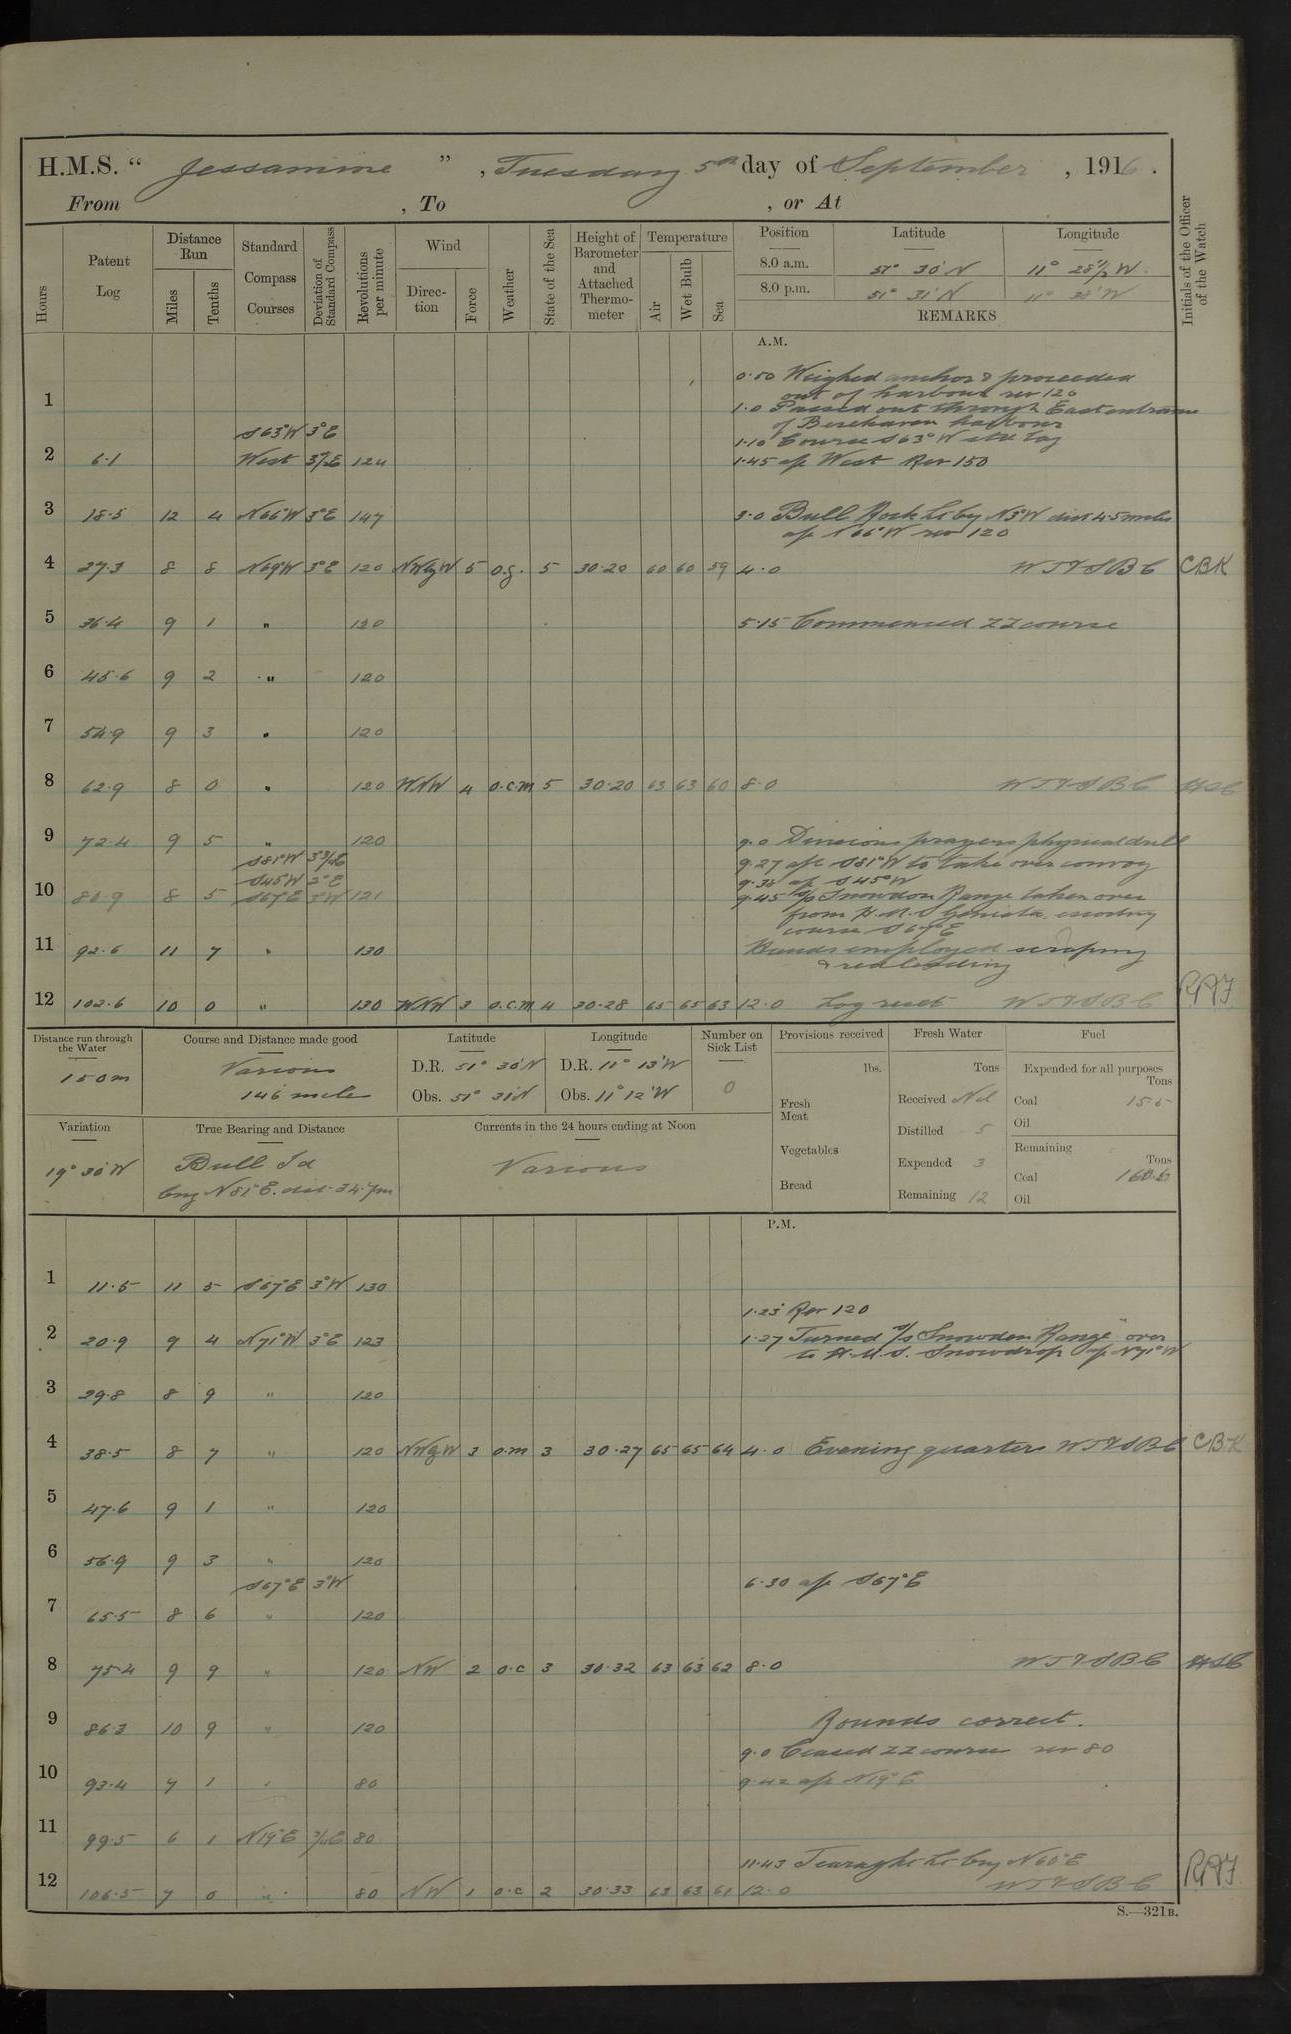 H.M.S. “ Jessamine ” , Tuesday 5th day of September , 1916 .
From , To , or At
Hours
Patent Log
Distance Run
Miles
Tenths
Standard Compass Courses
Deviation of Standard Compass
Revolutions per minute
Wind
Direction
Force
Weather
State of the Sea
Height of Barometer and Attached Thermometer
Temperature
Air
Wet Bulb
Sea
Position Latitude Longitude
8.0 a.m. 51° 30' N 11° 28½ W
8.0 p.m. 51° 31' N
REMARKS
Initials of the Officer of the Watch
A.M.
0.50 Weighed anchor & proceeded
out of harbour rev 120
1
1.0 Passed out through East entrance
of Berehaven harbour
S63°W 3°E
1.10 Course S63°W
2 6.1 West 124
1.45 a/c West Rev 150
3 18.5 12 4 N66°W 3°E 147
3.0 Bull Rock Lt by N3°W dist 4.5 miles
a/c N66°W rev 120
4 27.3 8 8 N69°W 3°E 120 NWbyW 5 o.g. 5 30.20 60 60 59 4.0 WTVSBC CBK
5 36.4 9 1 " 120 5.15 Commenced ZZ course
6 45.6 9 2 " 120
7 54.9 9 3 " 120
8 62.9 8 0 " 120 WNW 4 o.c.m 5 30.20 63 63 60 8.0 WTVSBC
9 72.4 9 5 " 120 9.0 Divisions prayers physical drill
S81°W
9.27 a/c S81°W to take over convoy
S45W 3°E
a/c S45°W
10 80.9 8 5 S67°E 3°W 121
9.45 S/S Snowdon Range taken over
from H.M.S Genista.
course S67°E
11 92.6 11 7 " 130 Hands employed scraping
& redleading
12 102.6 10 0 " 130 WNW 3 o.c.m 4 30.28 65 65 63 12.0 Log reset WTVSBC
Distance run through the Water
150m
Course and Distance made good
Various
146 mile
Latitude
D.R. 51° 30'N
Obs. 51° 31'N
Longitude
D.R. 11° 13'W
Obs. 11° 12'W
Number on Sick List
0
Provisions received
lbs.
Fresh Meat
Vegetables
Bread
Fresh Water
Tons
Received Nil
Distilled 5
Expended 3
Remaining 12
Fuel
Expended for all purposes
Tons
Coal 15.5
Oil
Remaining
Tons
Coal
Oil
Variation
19° 30'W
True Bearing and Distance
Bull Id
brg N81°E. dist.
Currents in the 24 hours ending at Noon
Various
P.M.
1 11.5 11 5 S67°E 3°W 130
1.23 Rev 120
2 20.9 9 4 N71°W 3°E 123
1.27 Turned S/S "Snowdon Range" over
to H.M.S. Snowdrop a/c N71°W
3 29.8 8 9 " 120
4 38.5 8 7 " 120 NWbyW 3 o.m 3 30.27 65 65 64 4.0 Evening quarters WTVSBC CBK
5 47.6 9 1 " 120
6 56.9 9 3 " 120
S67°E 3°W
6.30 a/c S67°E
7 65.5 8 6 " 120
8 75.4 9 9 " 120 NW 2 o.c 3 30.32 63 63 62 8.0 WTVSBC
9 86.3 10 9 " 120 Rounds correct.
9.0 Ceased ZZ course rev 80
10 93.4 7 1 " 80
9.42 a/c N19°E
11 99.5 6 1 N19°E 80
11.43 Tearaght Lt brg N60°E
12 106.5 7 0 " 80 NW 1 o.c 2 30.33 63 63 61 12.0 WTVSBC
S.—321B.